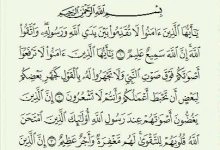 بِسْمِ اللَّهِ الرَّحْمَٰنِ الرَّحِيمِ
يَا أَيُّهَا الَّذِينَ ءَامَنُوا لَا تُقَدِّمُوا بَيْنَ يَدَيِ اللَّهِ وَرَسُولِهِ وَاتَّقُوا
اللَّهَ إِنَّ اللَّهَ سَمِيعٌ عَلِيمٌ ١ يَا أَيُّهَا الَّذِينَ ءَامَنُوا لَا تَرْفَعُوا
أَصْوَاتَكُمْ فَوْقَ صَوْتِ النَّبِيِّ وَلَا تَجْهَرُوا لَهُ بِالْقَوْلِ كَجَهْرِ بَعْضِكُمْ
لِبَعْضٍ أَن تَحْبَطَ أَعْمَالُكُمْ وَأَنتُمْ لَا تَشْعُرُونَ ٢ إِنَّ الَّذِينَ
يَغُضُّونَ أَصْوَاتَهُمْ عِندَ رَسُولِ اللَّهِ أُولَٰئِكَ الَّذِينَ امْتَحَنَ
اللَّهُ قُلُوبَهُمْ لِلتَّقْوَىٰ لَهُم مَّغْفِرَةٌ وَأَجْرٌ عَظِيمٌ ٣ إِنَّ الَّذِينَ